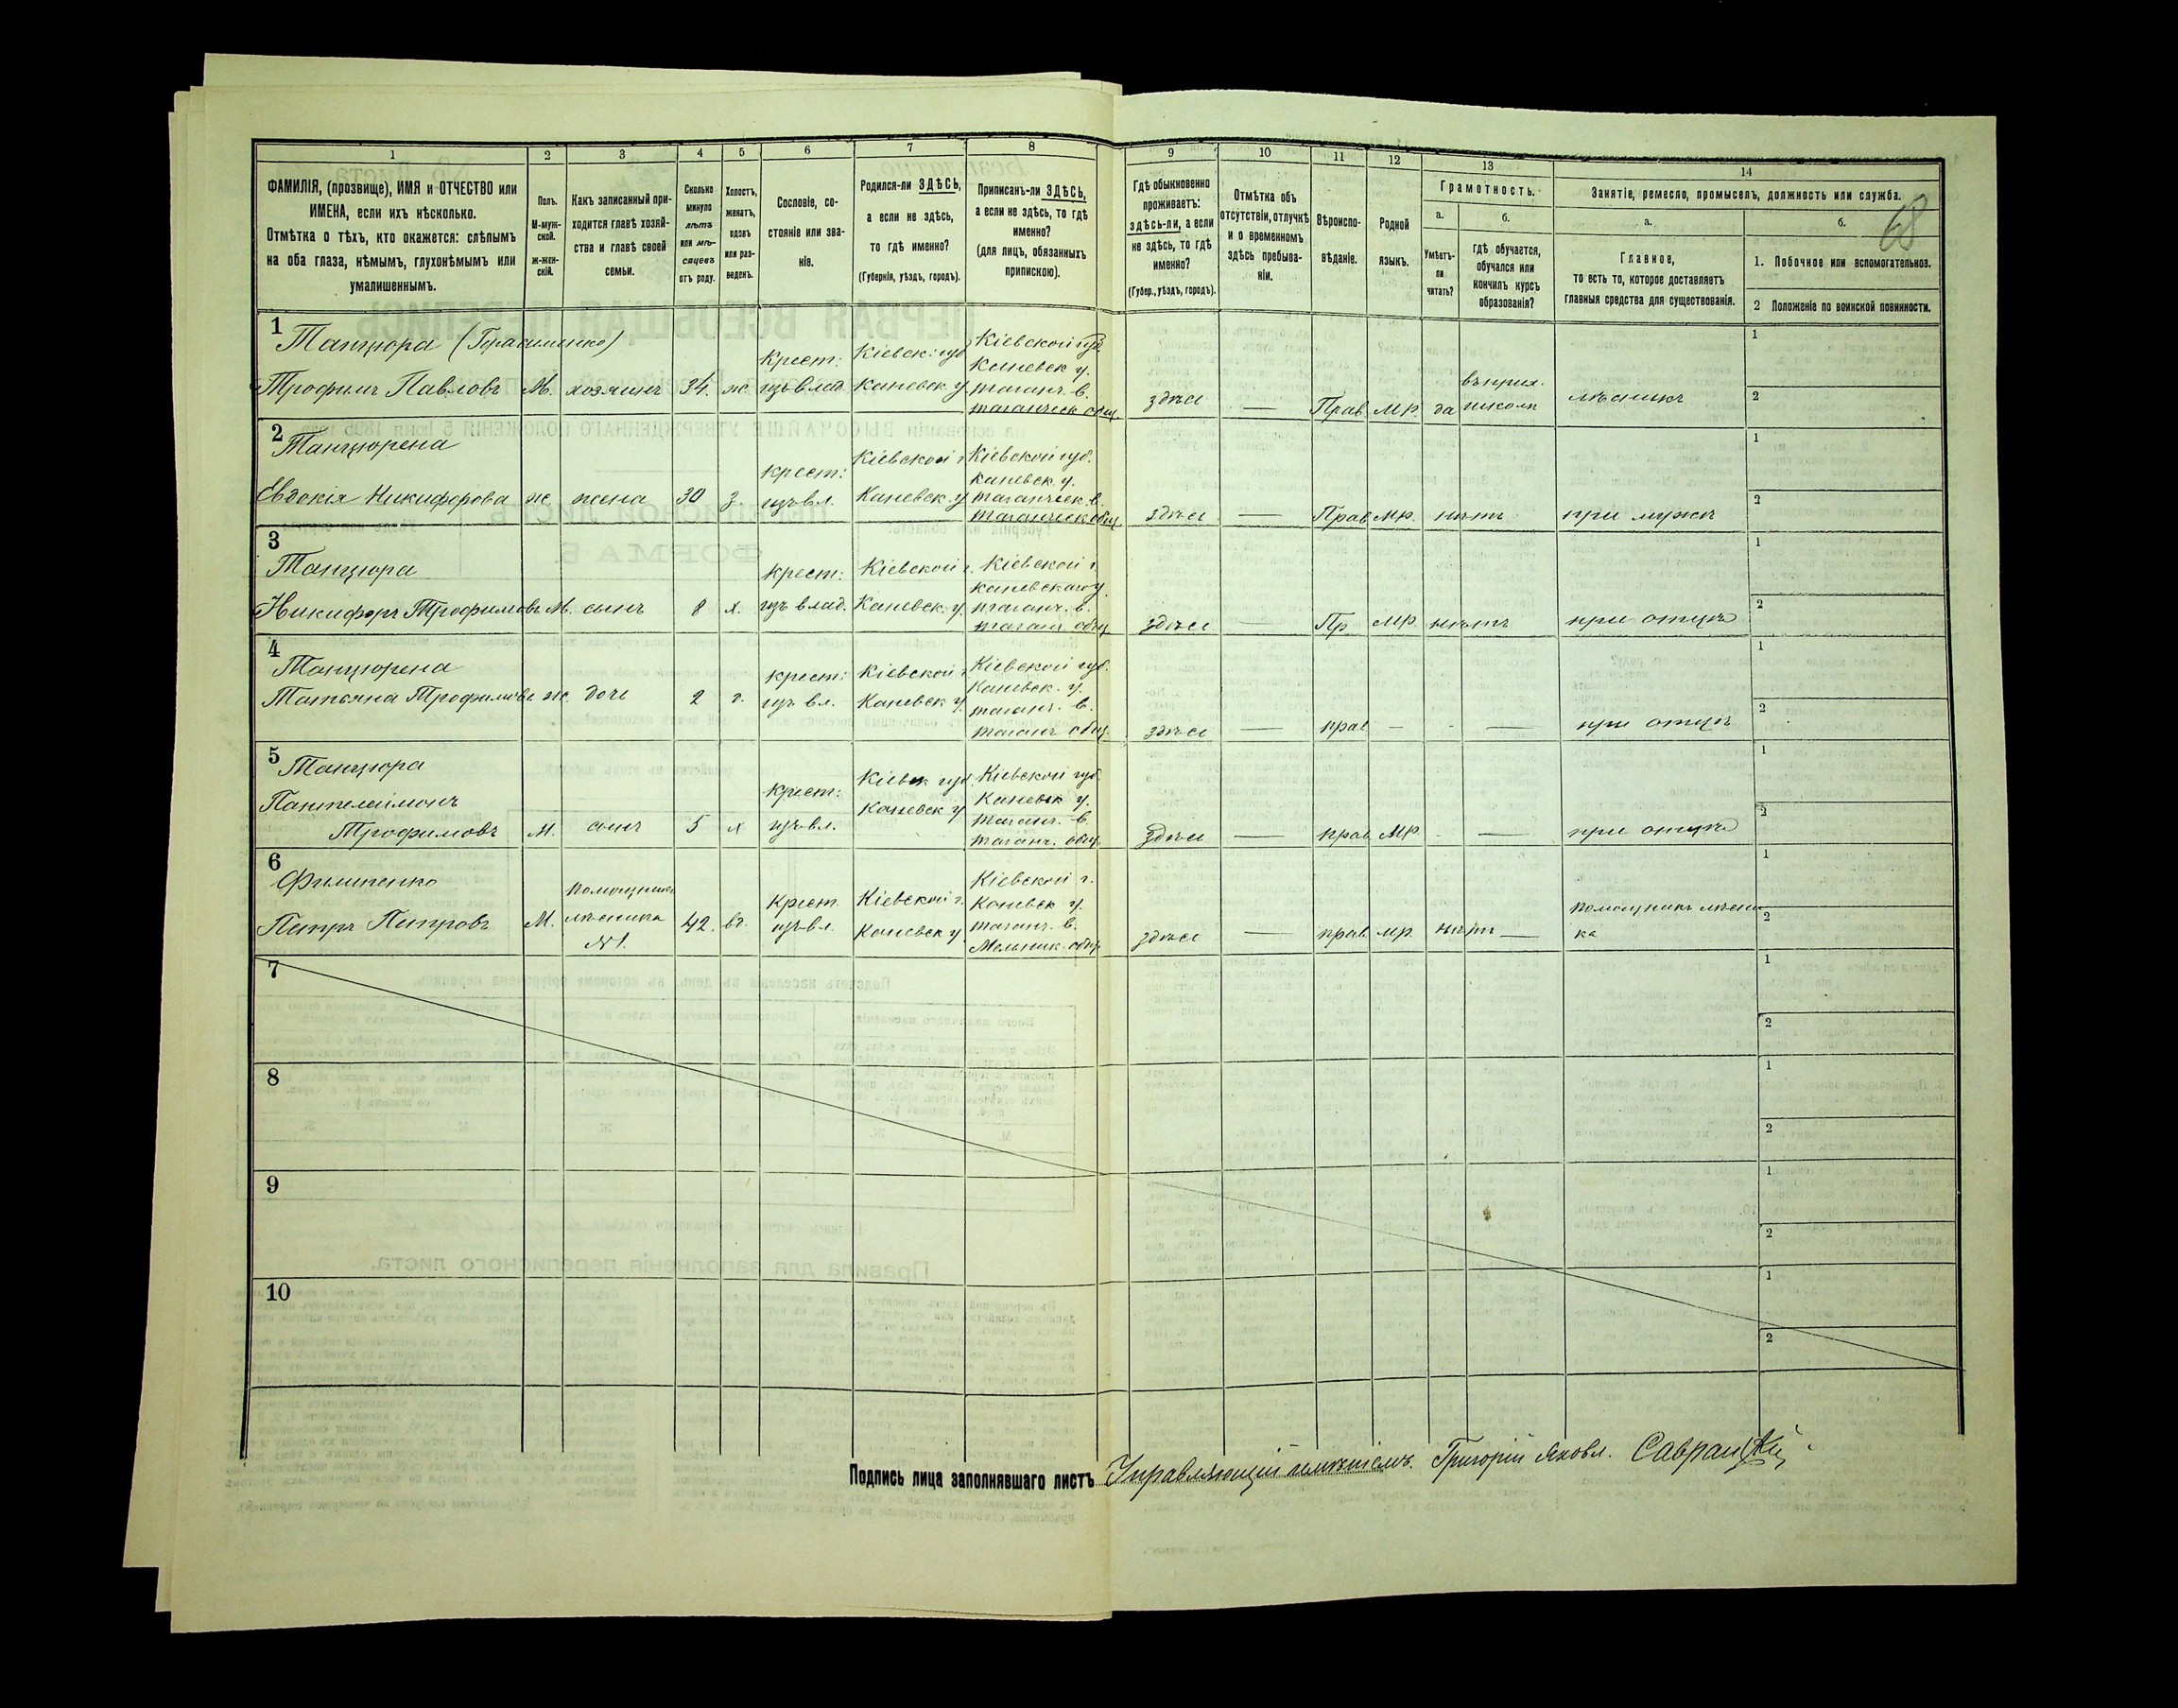 1 2 3 4 5 6 7 8 9 10 11 12 13 14
ФАМИЛІЯ, (прозвище), ИМЯ и ОТЧЕСТВО или
ИМЕНА, если ихъ нѣсколько.
Отмѣтка о тѣхъ, кто окажется: слѣпымъ
на оба глаза, нѣмымъ, глухонѣмымъ или
умалишеннымъ.
Полъ.
М-муж-
ской.
Ж-жен-
скій.
Какъ записанный при-
ходится главѣ хозяй-
ства и главѣ своей
семьи.
Сколько
минуло
лѣтъ
или мѣ-
сяцевъ
отъ роду.
Холостъ,
женатъ,
вдовъ
или раз-
веденъ.
Сословіе, со-
стояніе или зва-
ніе.
Родился-ли ЗДѢСЬ,
а если не здѣсь,
то гдѣ именно?
(Губернія, уѣздъ, городъ).
Приписанъ-ли ЗДѢСЬ,
а если не здѣсь, то гдѣ
именно?
(для лицъ, обязанныхъ
припискою).
Гдѣ обыкновенно
проживаетъ:
здѣсь-ли, а если
не здѣсь, то гдѣ
именно?
(Губер., уѣздъ, городъ).
Отмѣтка объ
отсутствіи, отлучкѣ
и о временномъ
здѣсь пребыва-
ніи.
Вѣроиспо-
вѣданіе.
Родной
языкъ.
Грамотность.
а. б.
Умѣетъ-
ли
читать?
Гдѣ обучается,
обучался или
кончилъ курсъ
образованія?
Занятіе, ремесло, промыселъ, должность или служба.
а. б.
68
Главное,
то есть то, которое доставляетъ
главныя средства для существованія.
1. Побочное или вспомогательное.
2 Положеніе по воинской повинности.
1
Танцюра (Герасименко)
Трофимъ Павловъ М. хозяинъ 34. ж.
Крест:
изъ влад.
Кіевск: губ
Каневск у.
Кіевской губ.
Каневск у.
таганч. в.
таганческ общ.
здѣсь — Прав. Мр. да
въ прих.
школѣ
лѣсникъ
1
2
2
Танцюрена
Евдокія Никифорова ж жена 30 з.
крест:
изъ вл.
Кіевской г.
Каневск. у.
Кіевской губ.
каневск. у.
таганческ. в.
таганческ общ.
здѣсь — Прав. Мр. нѣтъ при мужѣ
1
2
3
Танцюра
Никифоръ Трофимовъ М. сынъ 8 х.
крест:
изъ влад.
Кіевской г.
Каневск. у.
Кіевской г.
каневскаго у.
таганч. в.
таганч общ.
здѣсь — Пр Мр. нѣтъ при отцѣ
1
2
4
Танцюрена
Татьяна Трофимова ж. дочь 2
крест:
изъ вл.
Кіевской г.
Каневск у.
Кіевской губ.
Каневск. у.
таганч. в.
таганч общ.
здѣсь — прав — - — при отцѣ
1
2
5
Танцюра
Пантелеімонъ
Трофимовъ М. сынъ 5 х
крест:
изъ вл.
Кіевск губ.
Каневск у
Кіевской губ.
Каневск у.
таганч. в.
таганч. общ.
здѣсь — прав. Мр. - — при отцѣ
1
2
6
Филипенко
Петръ Петровъ М.
помощникъ
лѣсника
№1.
42. въ.
Крест.
изъ вл.
Кіевской г.
Каневск у
Кіевской г.
Каневск у.
таганч. в.
Мельник. общ.
здѣсь — прав. мр. нѣтъ —
помощникъ лѣсни
ка
1
2
7
1
2
8
1
2
9
1
2
10
1
2
Подпись лица заполнявшаго листъ Управляющій имѣніемъ. Григорій Яковл. Савранскій